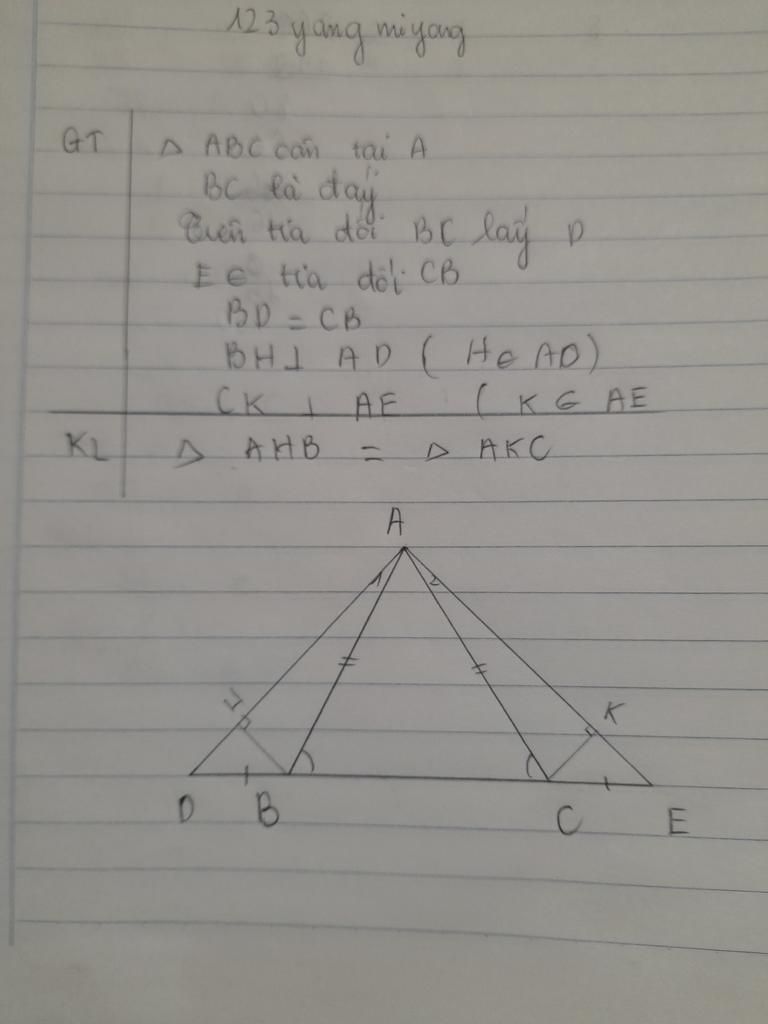 123 yang mi yang
GT △ ABC cân tại A
BC là đáy
Trên tia đối BC lấy D
E ∈ tia đối CB
BD = CB
BH ⊥ AD ( H ∈ AD)
CK ⊥ AE ( K ∈ AE
KL △ AHB = △ AKC
A
1 2
K
D B C E